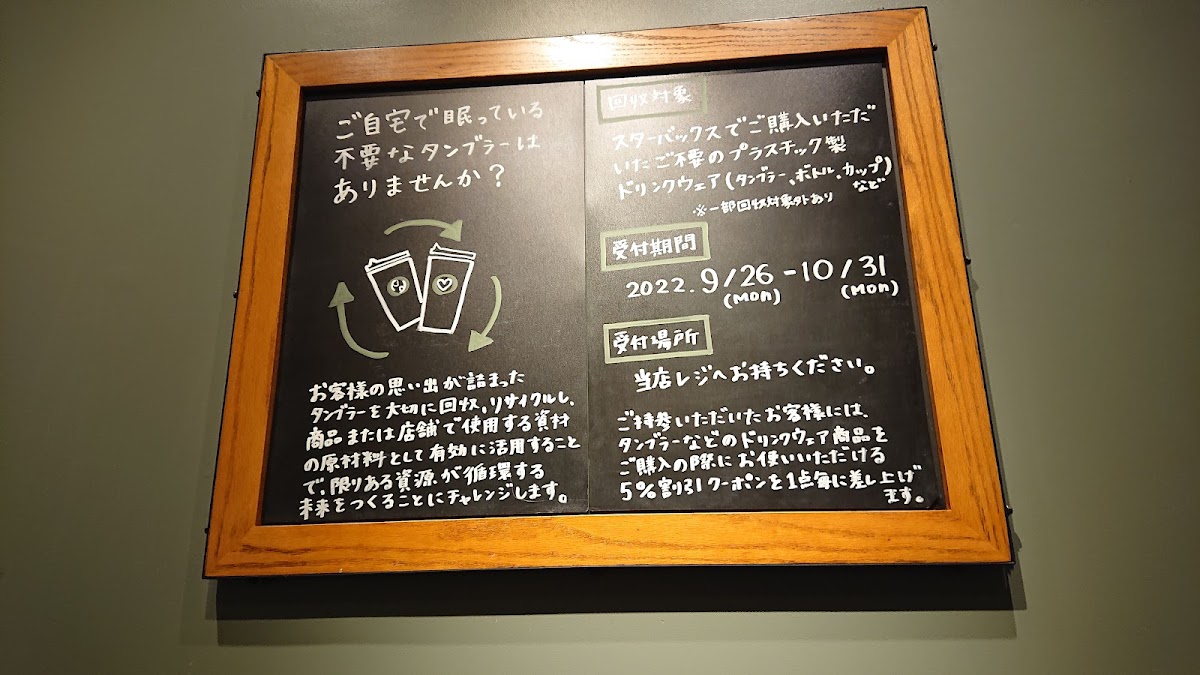 ご自宅で眠っている
不要なタンブラーは
ありませんか?
お客様の思い出が詰まった
タンブラーを大切に回収、リサイクルし、
商品または店舗で使用する資材
の原材料として有効に活用すること
で、限りある資源が循環する
未来をつくることにチャレンジします。
回収対象
スターバックスでご購入いただ
いたご不要のプラスチック製
ドリンクウェア(タンブラー、ボトル、カップ)
など
※一部回収対象外あり
受付期間
2022.9/26-10/31
(MON) (MON)
受付場所
当店レジへお持ちください。
ご持参いただいたお客様には、
タンブラーなどのドリンクウェア商品を
ご購入の際にお使いいただける
5%割引クーポンを1点毎に差し上げ
ます。